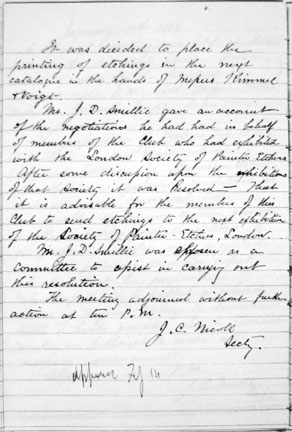 It was decided to place the
printing of etchings in the next
catalogue in the hands of Messrs Kimmel
& Voigt.
Mr. J. D. Smillie gave an account
of the negotiations he had had in behalf
of members of the Club who had exhibited
with the London Society of Painter Etchers.
After some discussion upon the exhibitions
of that Society it was Resolved — That
it is advisable for the members of this
Club to send etchings to the next exhibition
of the Society of Painter-Etchers, London.
Mr. J. D. Smillie was chosen as a
committee to assist in carrying out
this resolution.
The meeting adjourned without further
action at ten P.M.
J. C. Nicoll
Secty.